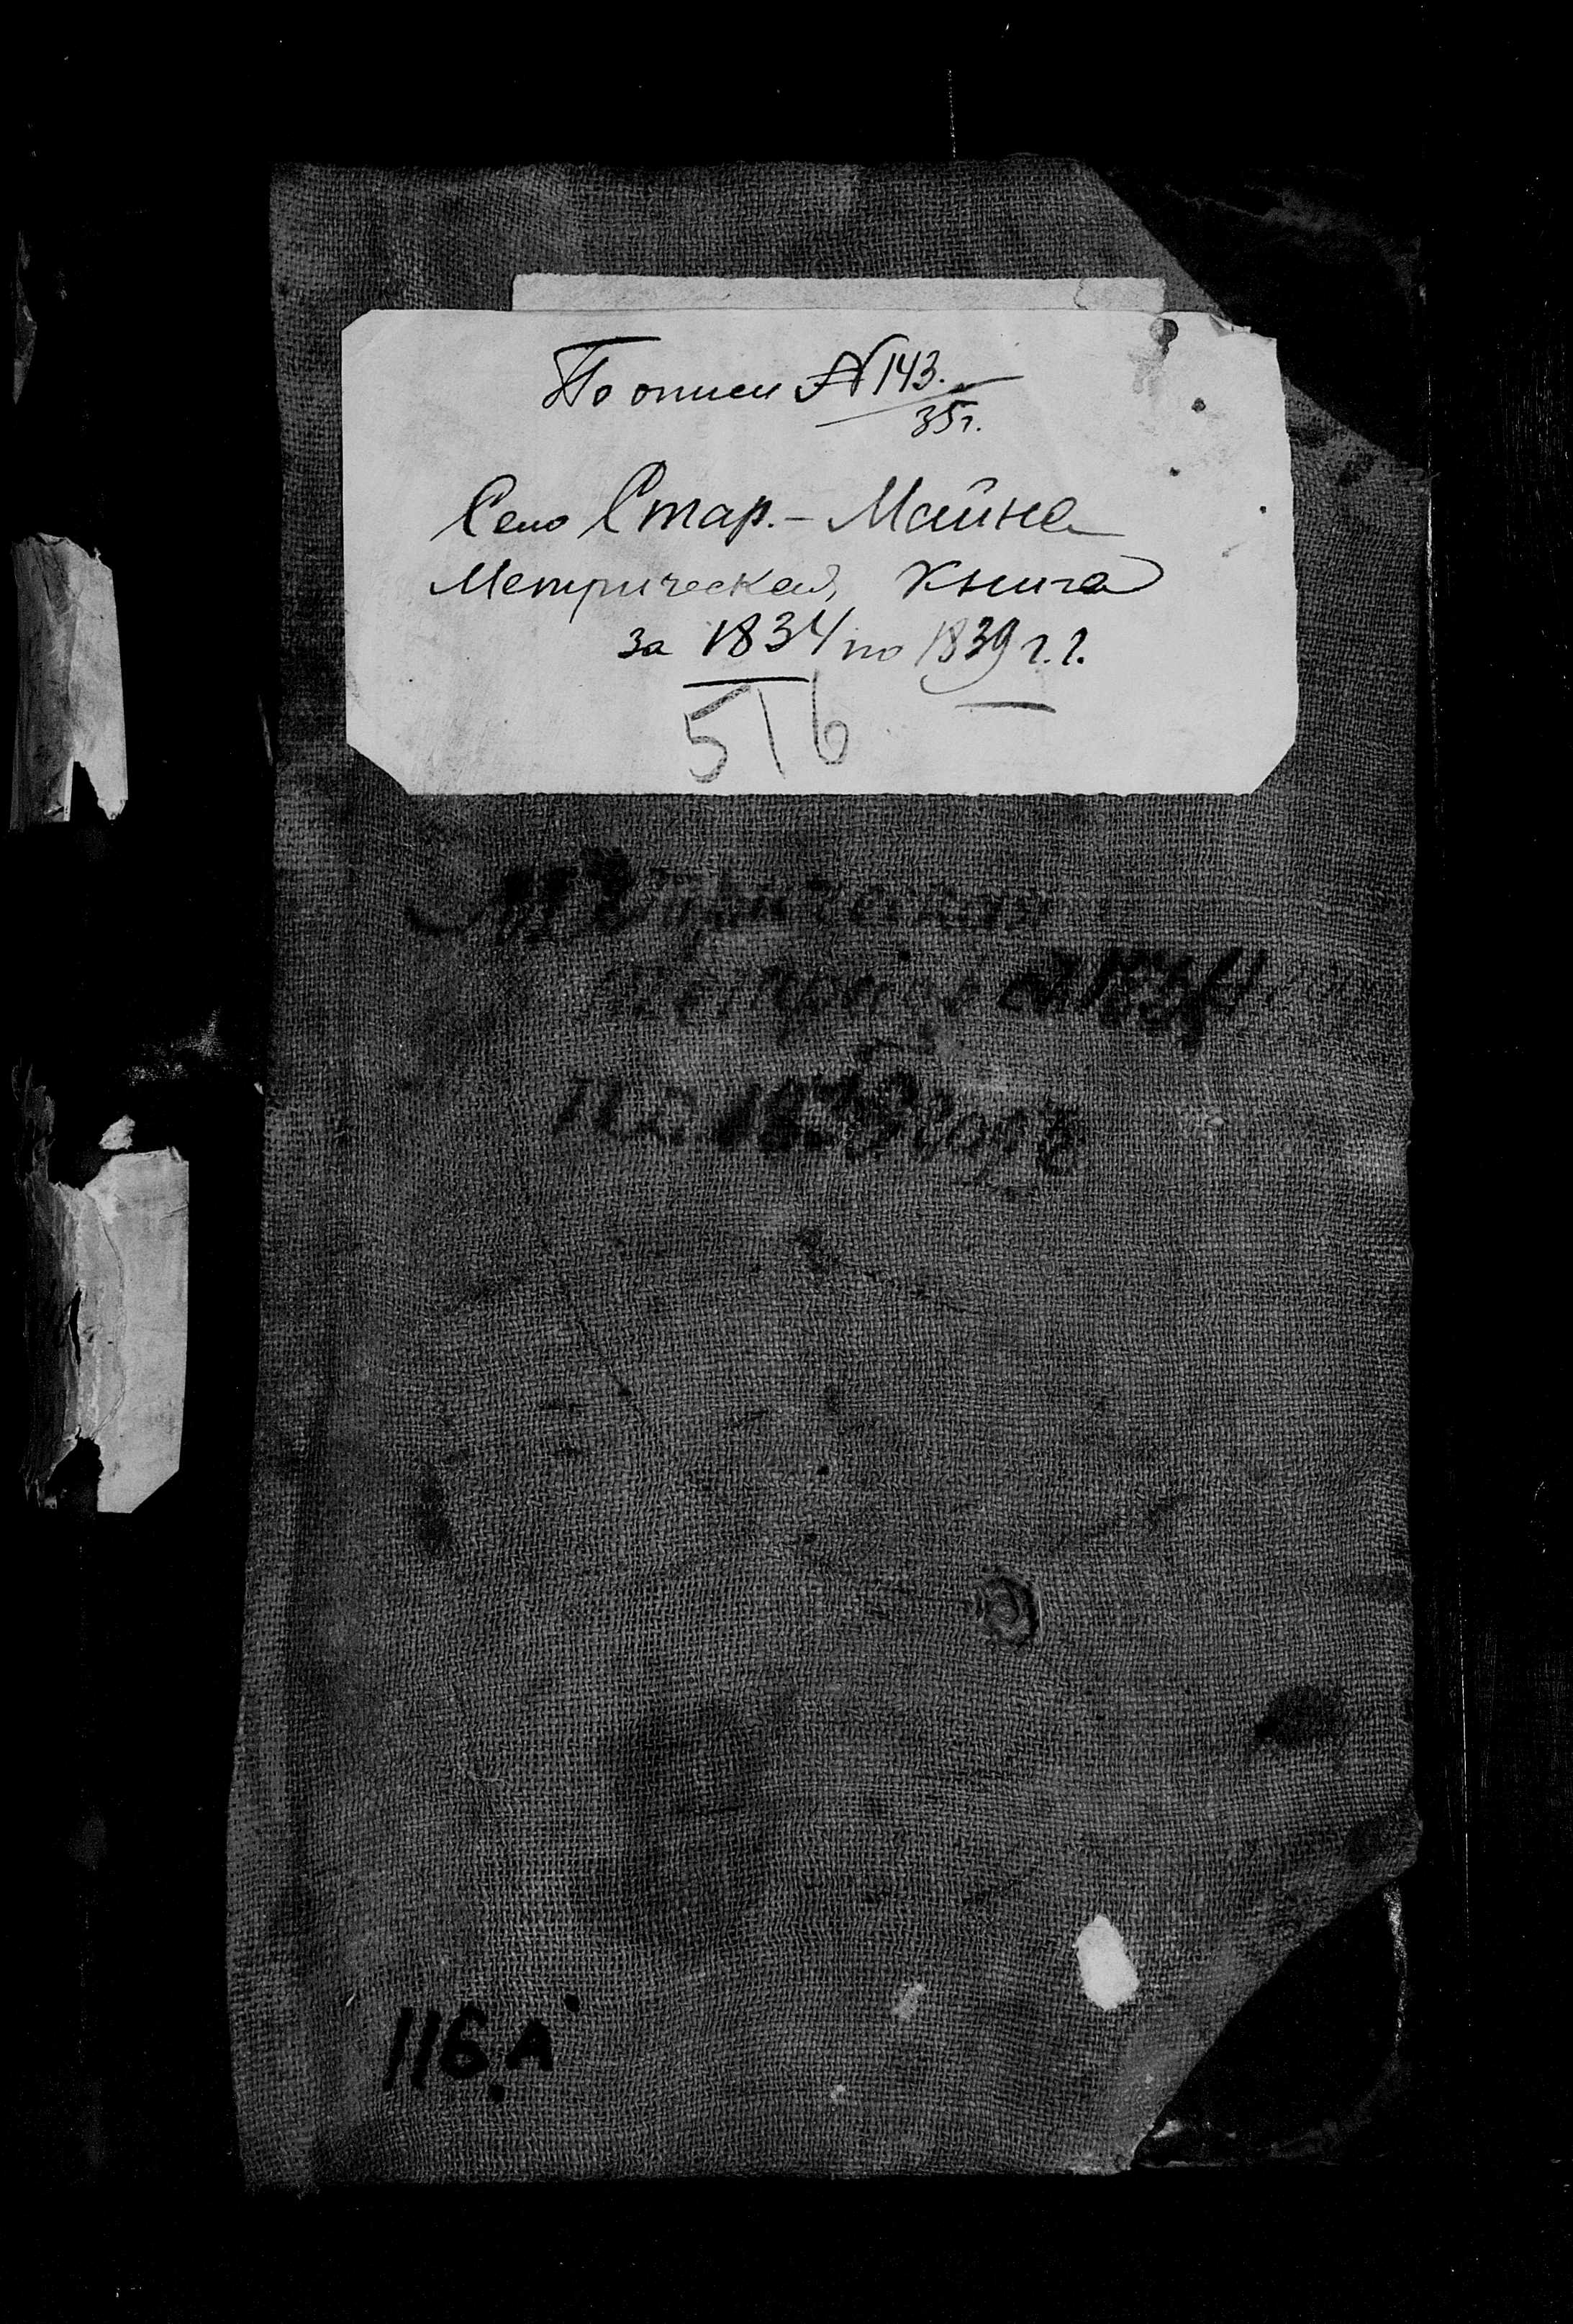 По описи № 143.
35 г.
Село Стар. - Майна
Метрическая книга
за 1834 по 1839 г. г.
516
Метрическая
тетради с 1834
по 1839 годъ
116. А